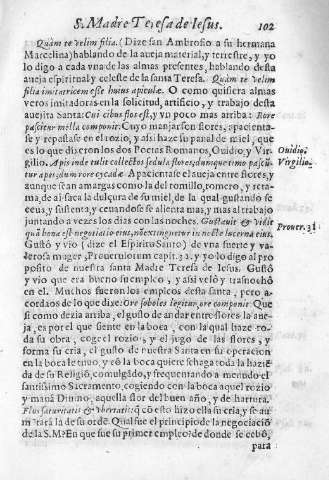 S. Madre Teresa de Iesus. 102
Quàm te velim filia. (Dize san Ambrosio a su hermana
Marcelina) hablando de la aueja material, y terrestre, y yo
lo digo a cada vna de las almas presentes, hablando desta
aueja espiritual y celeste de la santa Teresa. Quàm te velim
filia imitatricem esse huius apiculæ. O como quisiera almas
veros imitadoras en la solicitud, artificio, y trabajo desta
auejita Santa: Cui cibus flos est, y vn poco mas arriba: Rore
pascitur mella componit. Cuyo manjar son flores, apacienta-
se y repastase en el rozio, y assi haze su panal de miel, que
es lo que dixeron los dos Poetas Romanos, Ouidio, y Vir-
gilio. Apis inde tulit collectos sedula flores, dumque timo pasci-
tur apes, dum rore cycadæ. Apacientase el aueja entre flores, y
aunque sean amargas como la del romillo, romero, y reta-
ma, de ai saca la dulçura de su miel, de la qual gustando se
ceua, y sustenta, y ceuandose se alienta mas, y mas al trabajo
juntando a vezes los dias con las noches. Gustauit & vidit
quia bona est negotiatio eius, non extinguetur in nocte lucerna eius.
Gustò y vio (dize el Espiritu Santo) de vna fuerte y va-
lerosa muger, Prouerbiorem capit. 32. y yo lo digo al pro
posito de nuestra santa Madre Teresa de Iesus. Gustò
y vio que era bueno su empleo, y assi velò y trasnochò
en el. Muchos fueron los empleos desta santa, pero a-
cordaos de lo que dixe: Ore soboles legitur, ore componit. Que
si como dezia arriba, el gusto de andar entre flores la aue-
ja, es por el que siente en la boca, con la qual haze to-
da su obra, coge el rozio, y el jugo de las flores, y
forma su cria, el gusto de nuestra Santa en su operacion
en la boca le tuuo, y cõ la boca quiere se haga toda la hazie
da de su Religiõ, comulgãdo, y frequentando a menudo el
santissimo Sacramento, cogiendo con la boca aquel rozio
y manà Diuino, aquella flor del buen año, y de hartura.
Flos saturitatis & vbertatis: q cõ esto hizo ella su cria, y se au
mẽtarà la de su ordẽ. Qual fue el principio de la negociaciõ
de la S. M? En que fue su primer empleo? de donde se cebò,
para
Ouidio.
Virgilio.
Prouer. 31.